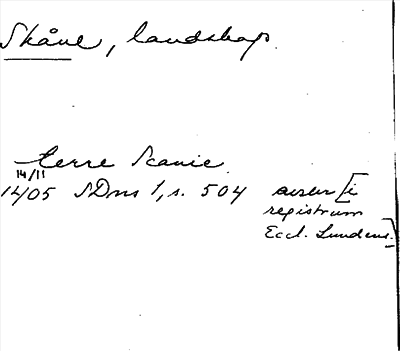 Skåne, landskap.
terre Scanie
14/11
1405 SDns 1, s. 504 avser [i
registrum
Eccl. Lundens.]